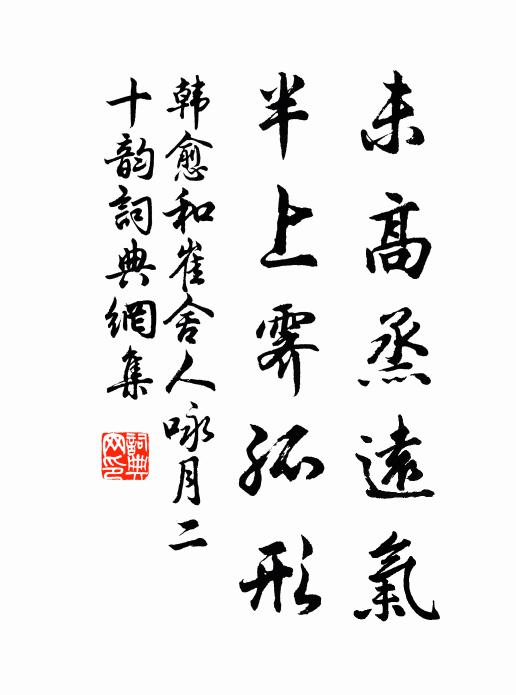 未高烝遠氣
半上霽孤形
韓愈和崔舍人咏月二
十韵詞典網集
詞典網印